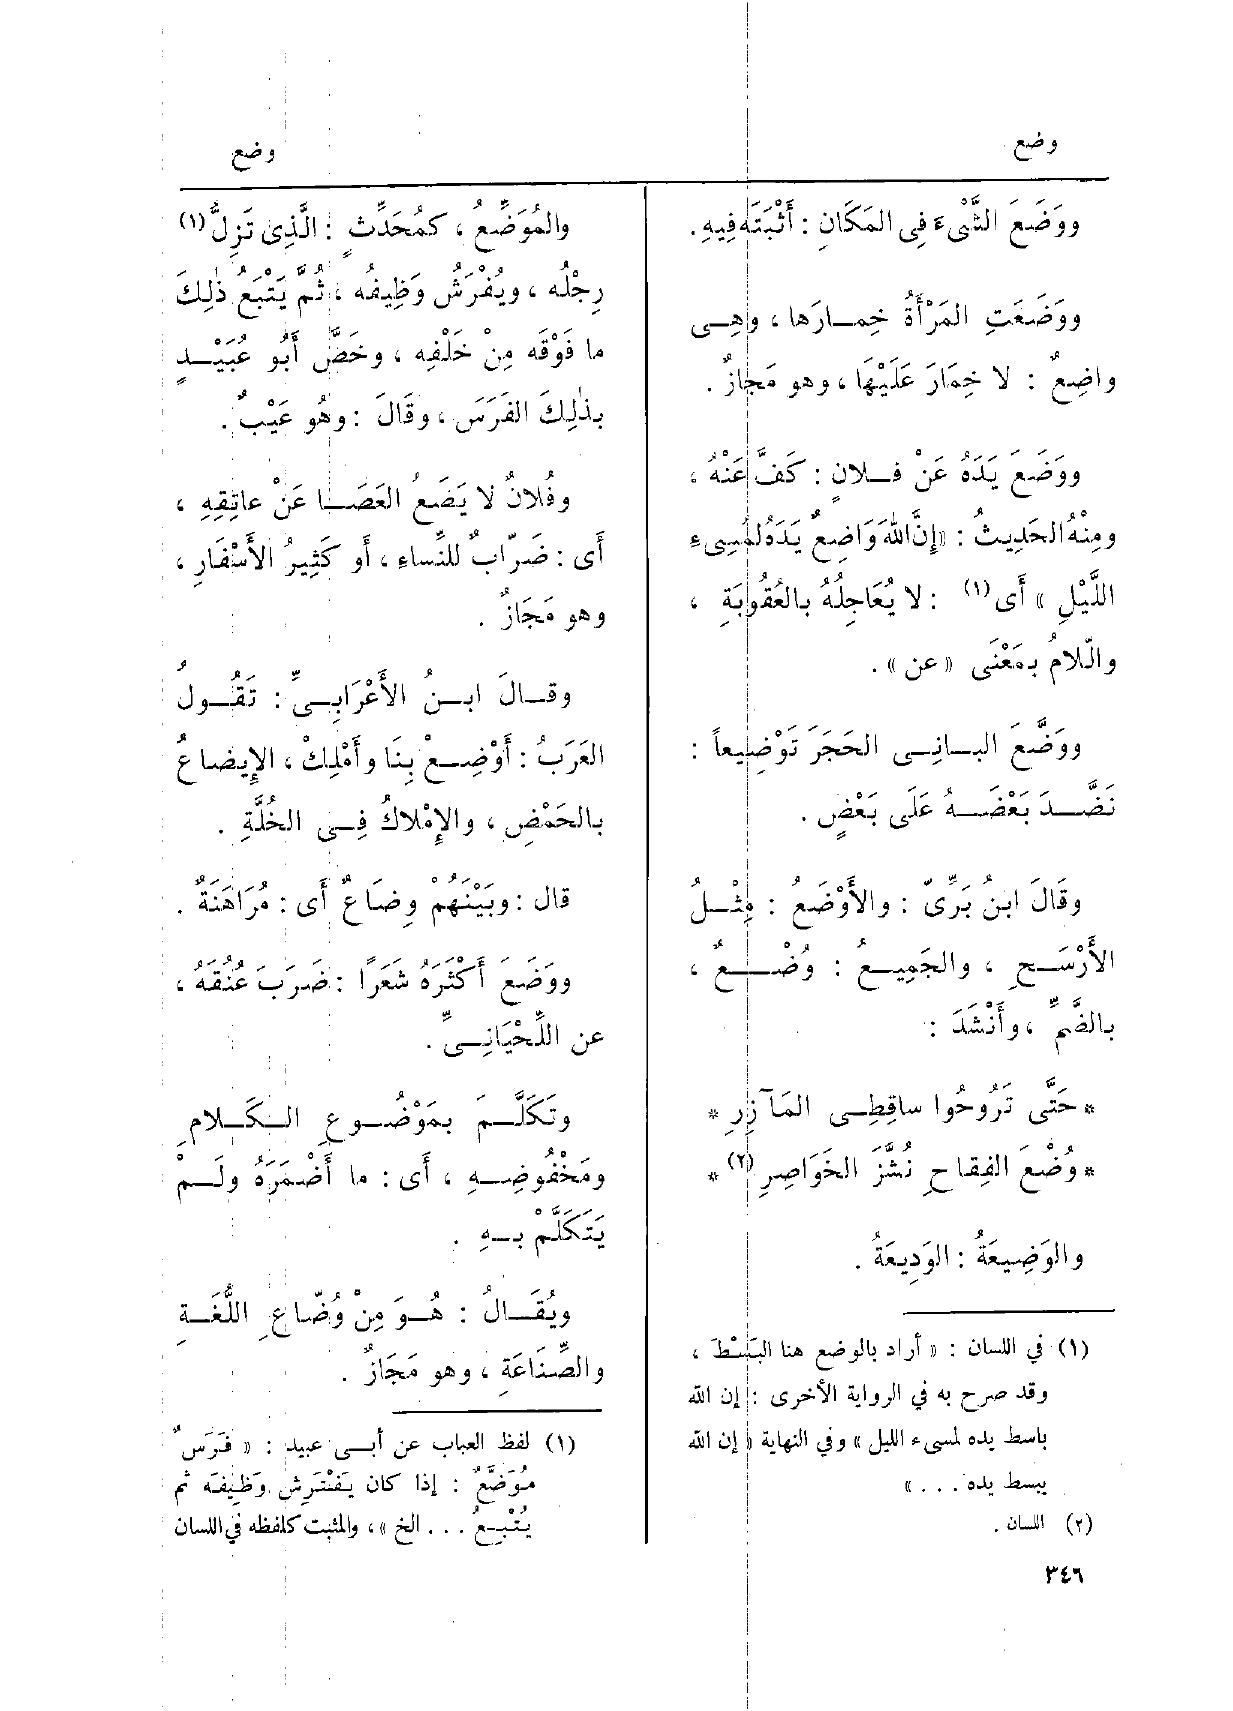 وضع
وضع
ووَضَعَ الشَّىْءَ فِى المَكَانِ : أَثْبَتَه فِيهِ .
ووَضَعَتِ المَرْأَةُ خِمـارَها ، وهِـى
واضِعٌ : لا خِمَارَ عَلَيْهَا ، وهو مَجَازٌ .
ووَضَعَ يَدَهُ عَنْ فـلانٍ : كَفَّ عَنْهُ ،
ومِنْهُ الحَدِيثُ : «إِنَّ اللهَ وَاضِعٌ يَدَهُ لمُسِىءِ
اللَّيْلِ » أَى (١) : لا يُعَاجِلُهُ بالعُقُوبَةِ ،
والّلامُ بمَعْنَى « عن » .
ووَضَّعَ البـانِـى الحَجَرَ تَوْضِيعاً :
نَضَّـدَ بَعْضَـهُ عَلَى بَعْضٍ .
وقَالَ ابنُ بَرِّىّ : والأَوْضَعُ : مِثْـلُ
الأَرْسَـحِ ، والجَمِيـعُ : وُضْـعٌ ،
بالضَّمِّ ، وأَنْشَدَ :
* حَتَّى تَرُوحُوا ساقِطِـى المَآزِرِ *
* وُضْعَ الفِقاحِ نُشَّزَ الخَوَاصِرِ (٢) *
والوَضِيعَةُ : الوَدِيعَةُ .
(١) في اللسان : « أراد بالوضع هنا البَسْطَ ،
وقد صرح به في الرواية الأخرى : إن الله
باسط يده لمسىء الليل » وفي النهاية « إن الله
يبسط يده . . . »
(٢) اللسان .
٣٤٦
والمُوَضِّعُ ، كمُحَدِّثٍ : الَّذِى تَزِلُّ (١)
رِجْلُه ، ويُفْرَشُ وَظِيفُه ، ثُمَّ يَتْبَعُ ذٰلِكَ
ما فَوْقَه مِنْ خَلْفِه ، وخَصَّ أَبُو عُبَيْـدٍ
بذٰلِكَ الفَرَسَ ، وقَالَ : وهُو عَيْبٌ .
وفُلانٌ لا يَضَعُ العَصَـا عَنْ عاتِقِهِ ،
أَى : ضَرّابٌ للنِّساءِ ، أَو كَثِيرُ الأَسْفَارِ ،
وهو مَجَازٌ .
وقـالَ ابـنُ الأَعْرَابِـىِّ : تَقُـولُ
العَرَبُ : أَوْضِـعْ بِنَا وأَمْلِكْ ، الإِيضاعُ
بالحَمْضِ ، والإِمْلاكُ فِـى الخُلَّةِ .
قال : وبَيْنَهُمْ وِضَاعٌ أَى : مُرَاهَنَةٌ .
ووَضَعَ أَكْثَرَهُ شَعَرًا : ضَرَبَ عُنُقَهُ ،
عن اللِّحْيَانِـىِّ .
وتَكَلَّـمَ بمَوْضُـوعِ الـكَـلامِ
ومَخْفُوضِـهِ ، أَى : ما أَضْمَرَهُ ولَـمْ
يَتَكَلَّمْ بـهِ .
ويُقَـالُ : هُـوَ مِنْ وُضّاعِ اللُّغَـةِ
والصِّنَاعَةِ ، وهو مَجَازٌ .
(١) لفظ العباب عن أبـى عبيد : « فَرَسٌ
مُوَضَّعٌ : إذا كان يَفْتَرِش وَظِيفَه ثم
يُتْبِـعُ . . . الخ » ، والمثبت كلفظه في اللسان